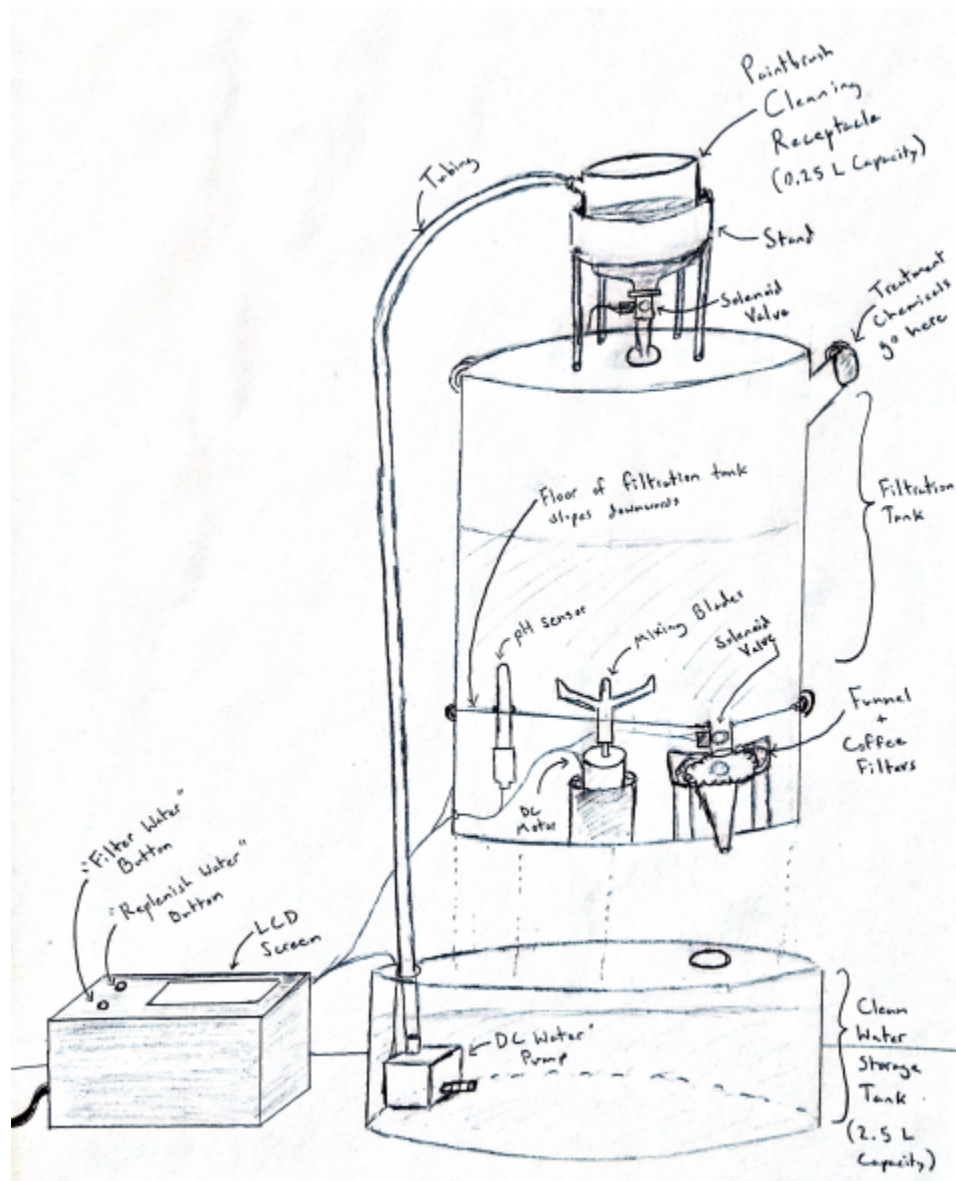 Paintbrush
Cleaning
Receptacle
(0.25 L Capacity)
Tubing
Stand
Solenoid
Valve
Treatment
Chemicals
go here
Filtration
Tank
Floor of filtration tank
slopes downwards
pH sensor
Mixing Blades
Solenoid
Valve
Funnel
+
Coffee
Filters
DC
Motor
"Filter Water"
Button
"Replenish Water"
Button
LCD
Screen
DC Water
Pump
Clean
Water
Storage
Tank
(2.5 L
Capacity)